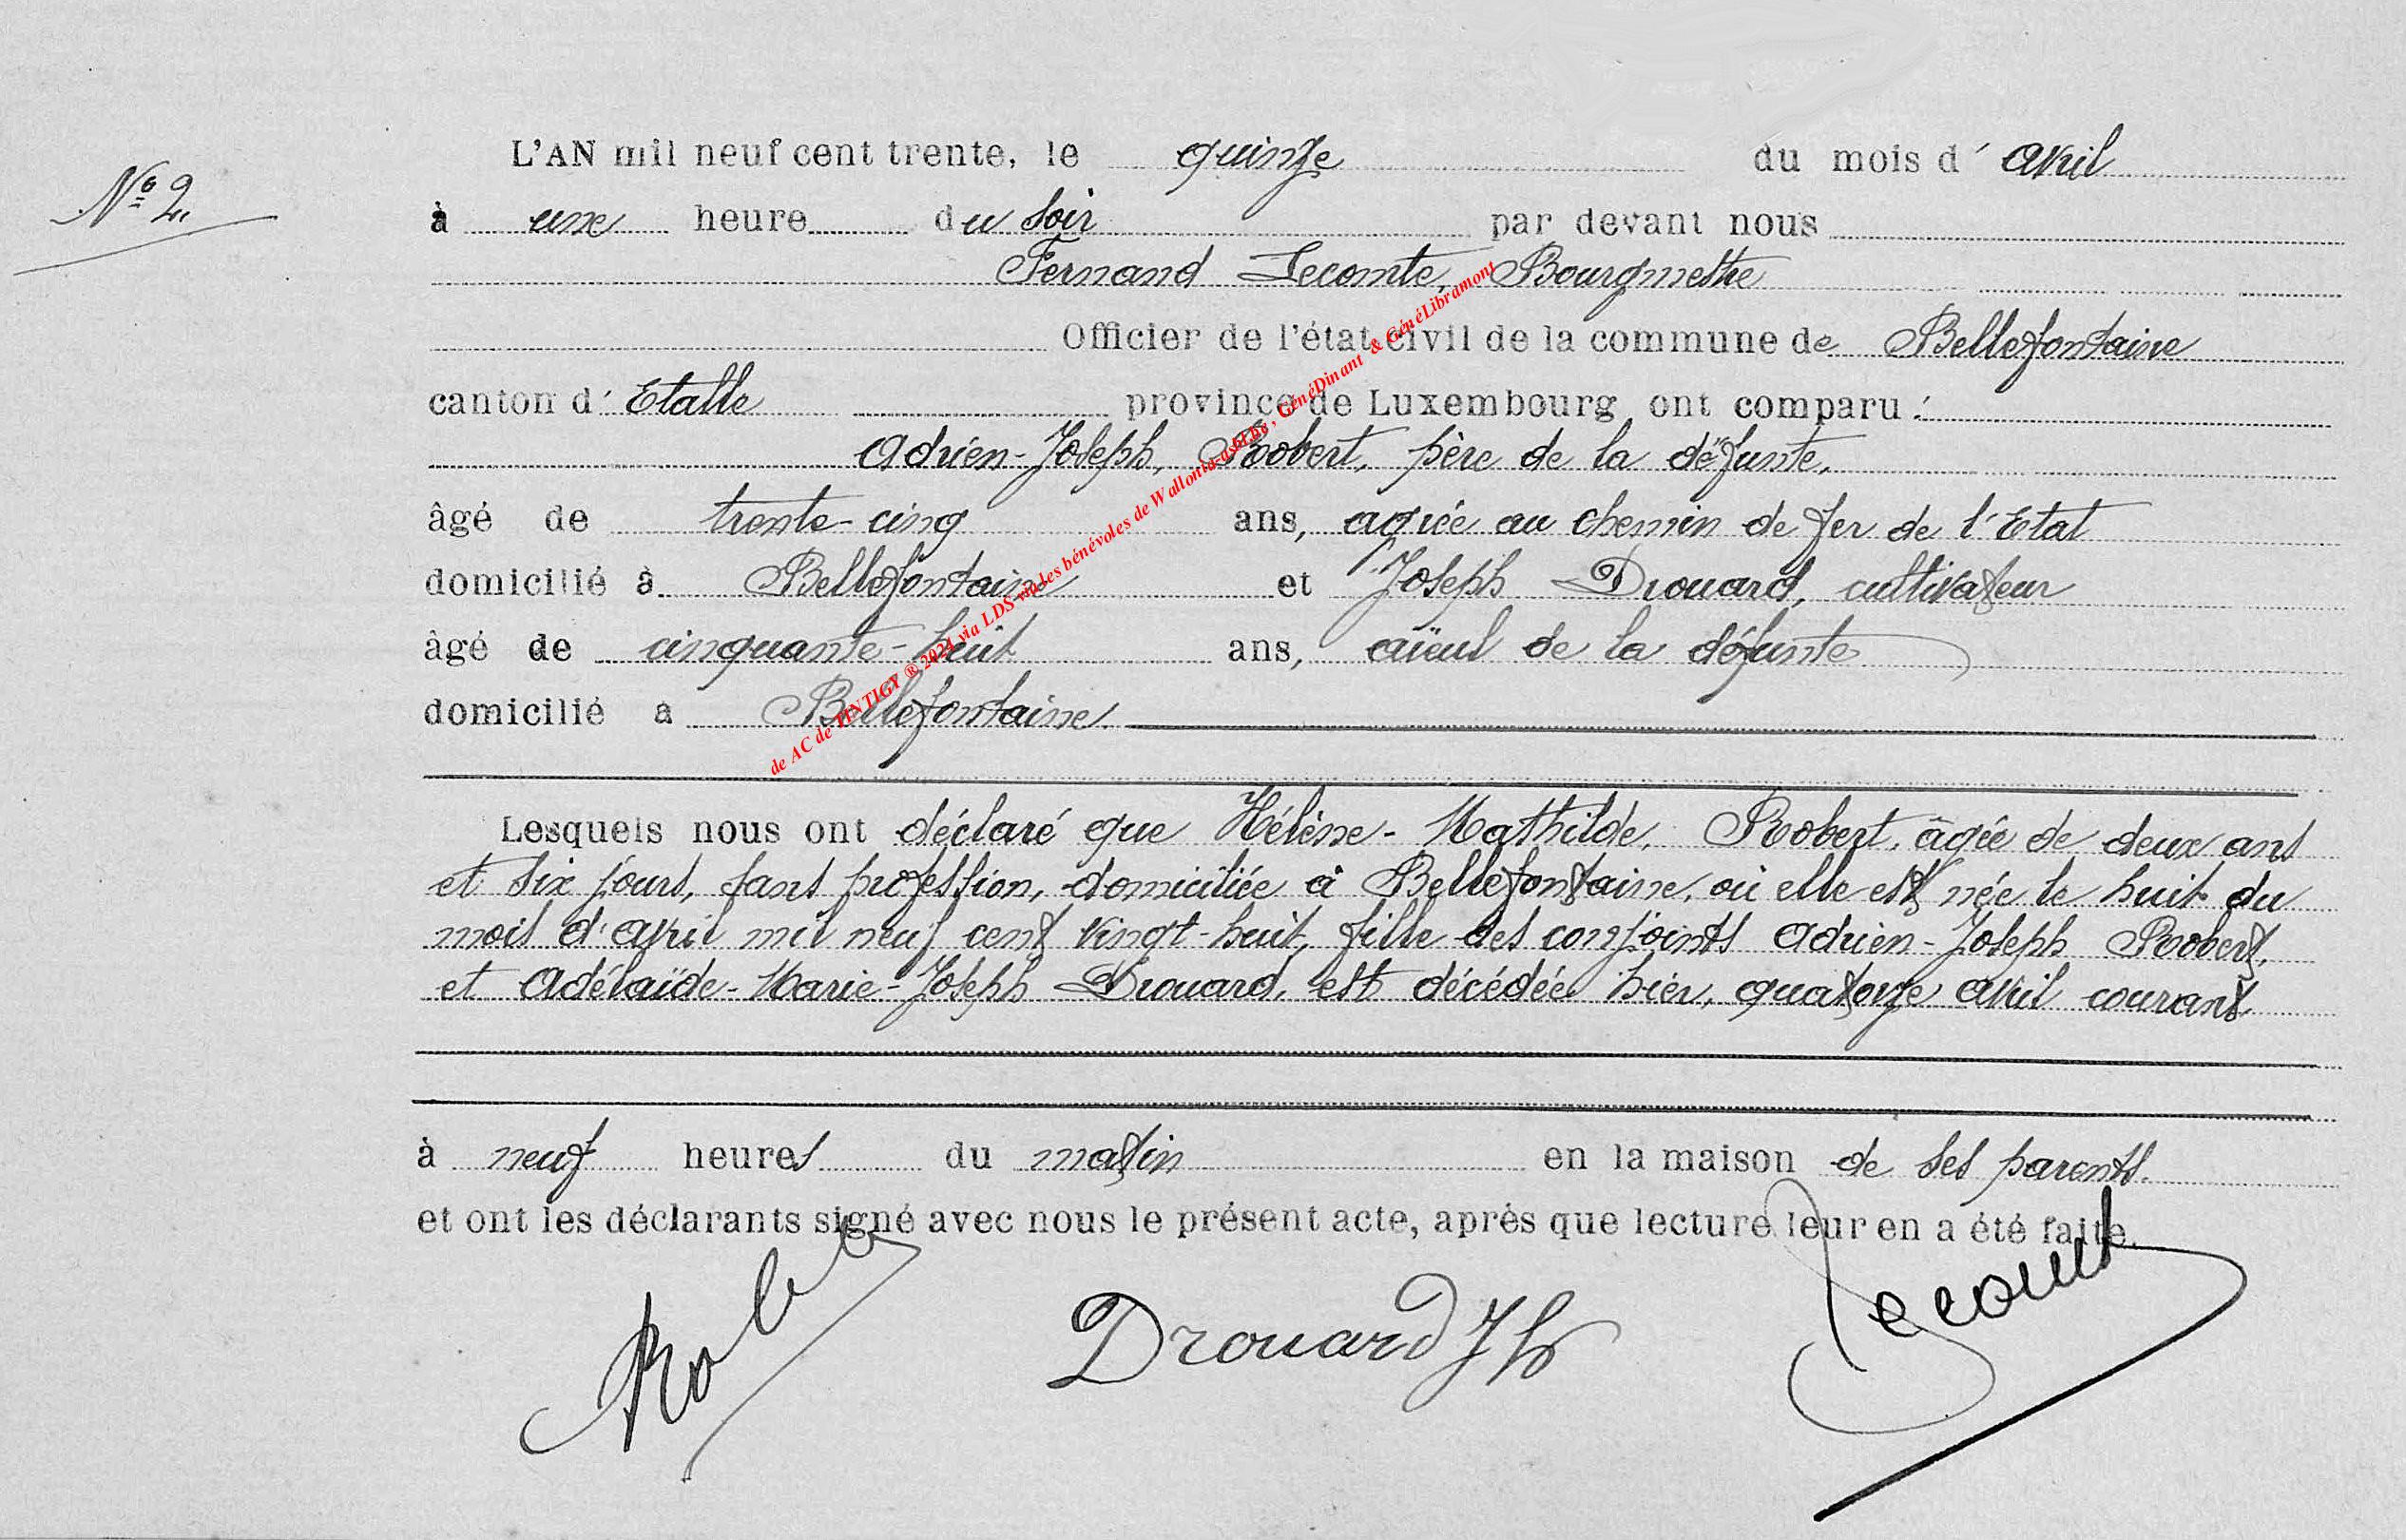 L'AN mil neuf cent trente, le quinze du mois d' avril
N° 2.
à une heure du soir par devant nous
Fernand Lecomte, Bourgmestre
Officier de l'état civil de la commune de Bellefontaine
canton d' Etalle province de Luxembourg ont comparu :
Adrien-Joseph, Robert, père de la défunte,
âgé de trente-cinq ans, agréé au chemin de fer de l'Etat
domicilié à Bellefontaine et Joseph Drouard, cultivateur
âgé de cinquante-huit ans, aïeul de la défunte
domicilié a Bellefontaine.
de AC de TINTIGY ® 2024 via LDS via les bénévoles de Wallonia-asbl.be, GénéDinant & GénéLibramont
Lesquels nous ont déclaré que Hélène-Mathilde, Robert, âgée de deux ans
et six jours, sans profession, domiciliée à Bellefontaine, où elle est née le huit du
mois d'avril mil neuf cent vingt-huit, fille des conjoints Adrien-Joseph Robert,
et Adélaïde-Marie-Joseph Drouard, est décédée hier, quatorze avril courant
à neuf heures du matin en la maison de ses parents.
et ont les déclarants signé avec nous le présent acte, après que lecture leur en a été faite.
Robert Drouard Jh Lecomte